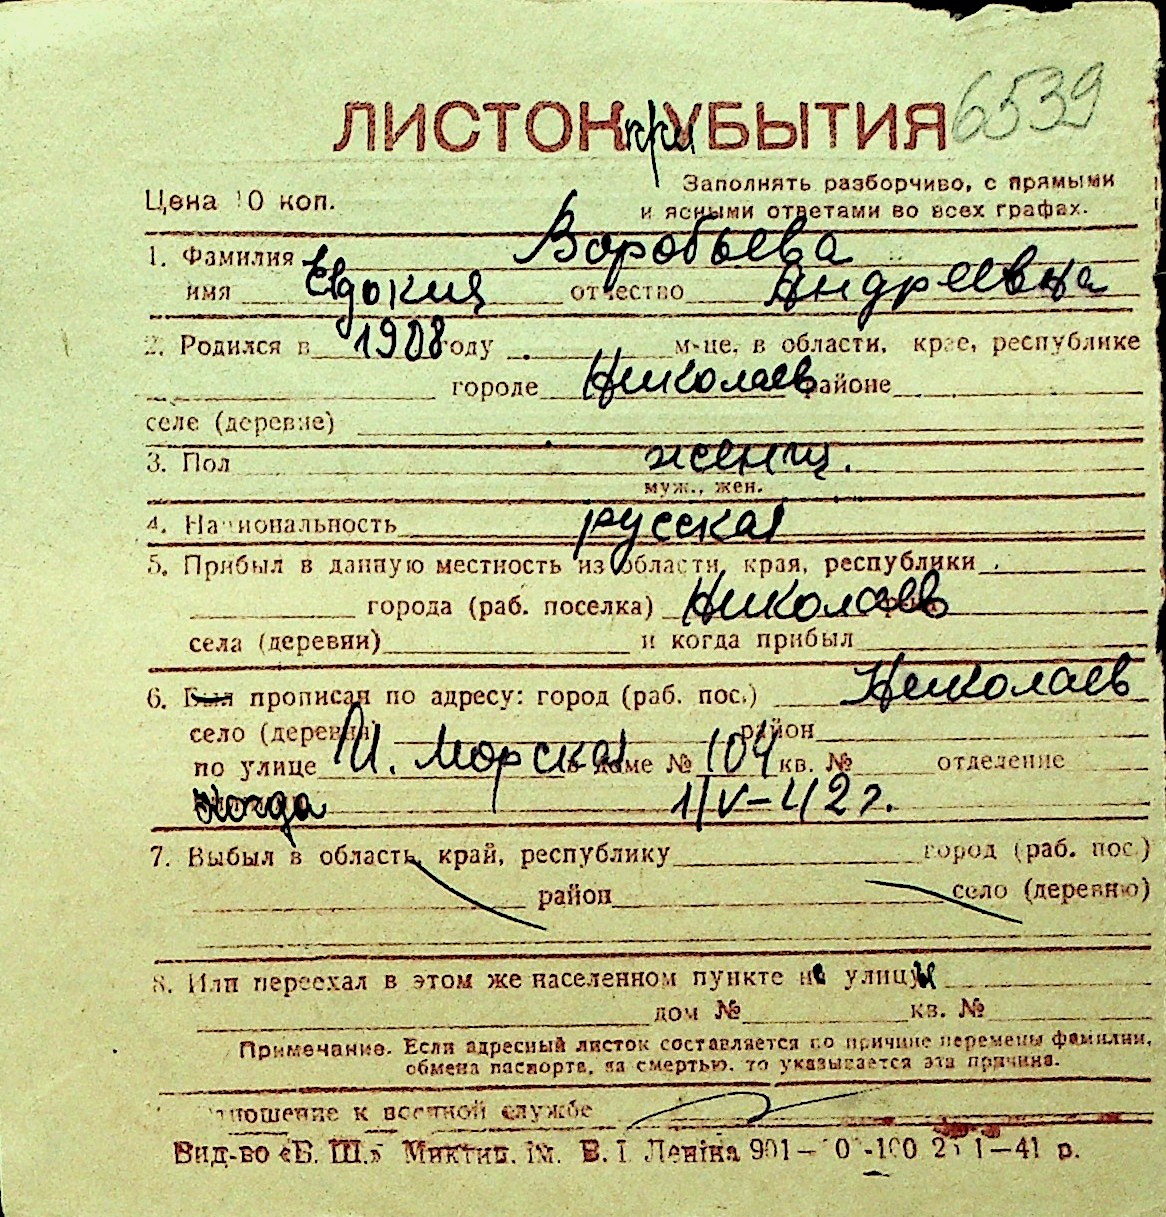 6539
ЛИСТОК при УБЫТИЯ
Заполнять разборчиво, с прямыми
Цена 10 коп.
и ясными ответами во всех графах.
1. Фамилия Воробьева
имя Евдокия отчество Андреевна
2. Родился в 1908 году м-це, в области, крае, республике
городе Николаев районе
селе (деревне)
3. Пол женщ.
муж., жен.
4. Национальность русская
5. Прибыл в данную местность из области, края, республики
города (раб. поселка) Николаев
села (деревни) и когда прибыл
6. Был прописан по адресу: город (раб. пос.) Николаев
село (деревня) район
по улице И. Морская в доме № 104 кв. № отделение
Когда 1/V-42 г.
7. Выбыл в область, край, республику город (раб. пос.)
район село (деревню)
8. Или переехал в этом же населенном пункте на улицу
дом № кв. №
Примечание. Если адресный листок составляется по причине перемены фамилии,
обмена паспорта, за смертью, то указывается эта причина.
отношение к военной службе
Вид-во «Б. Ш.» Миктип. ім. В. І. Леніна 901—